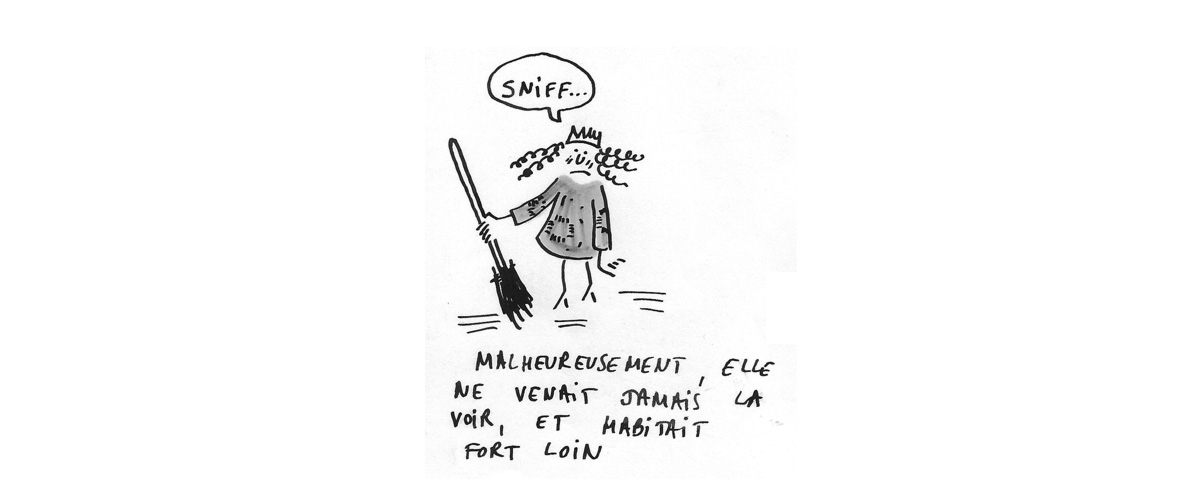 SNiFF...
MALHEUREUSEMENT, ELLE
NE VENAiT JAMAiS LA
VOiR, ET HABiTAiT
FORT LOiN